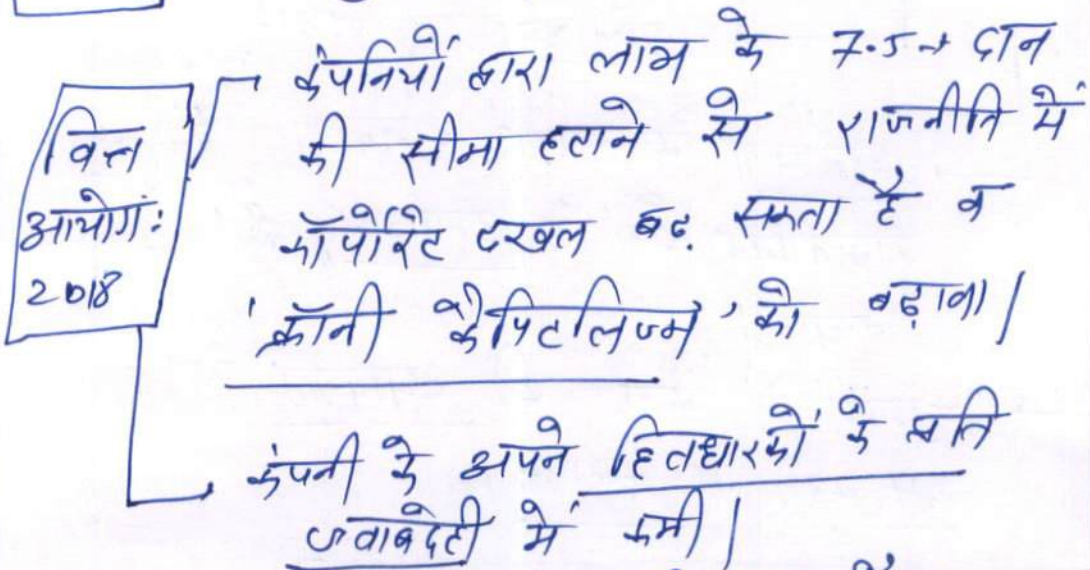 वित्त
आयोग:
2018
कंपनियों द्वारा लाभ के 7.5% दान
की सीमा हटाने से राजनीति में
कॉर्पोरेट दखल बढ़ सकता है व
'क्रॉनी कैपिटलिज्म' को बढ़ावा।
कंपनी के अपने हितधारकों के प्रति
जवाबदेही में कमी।